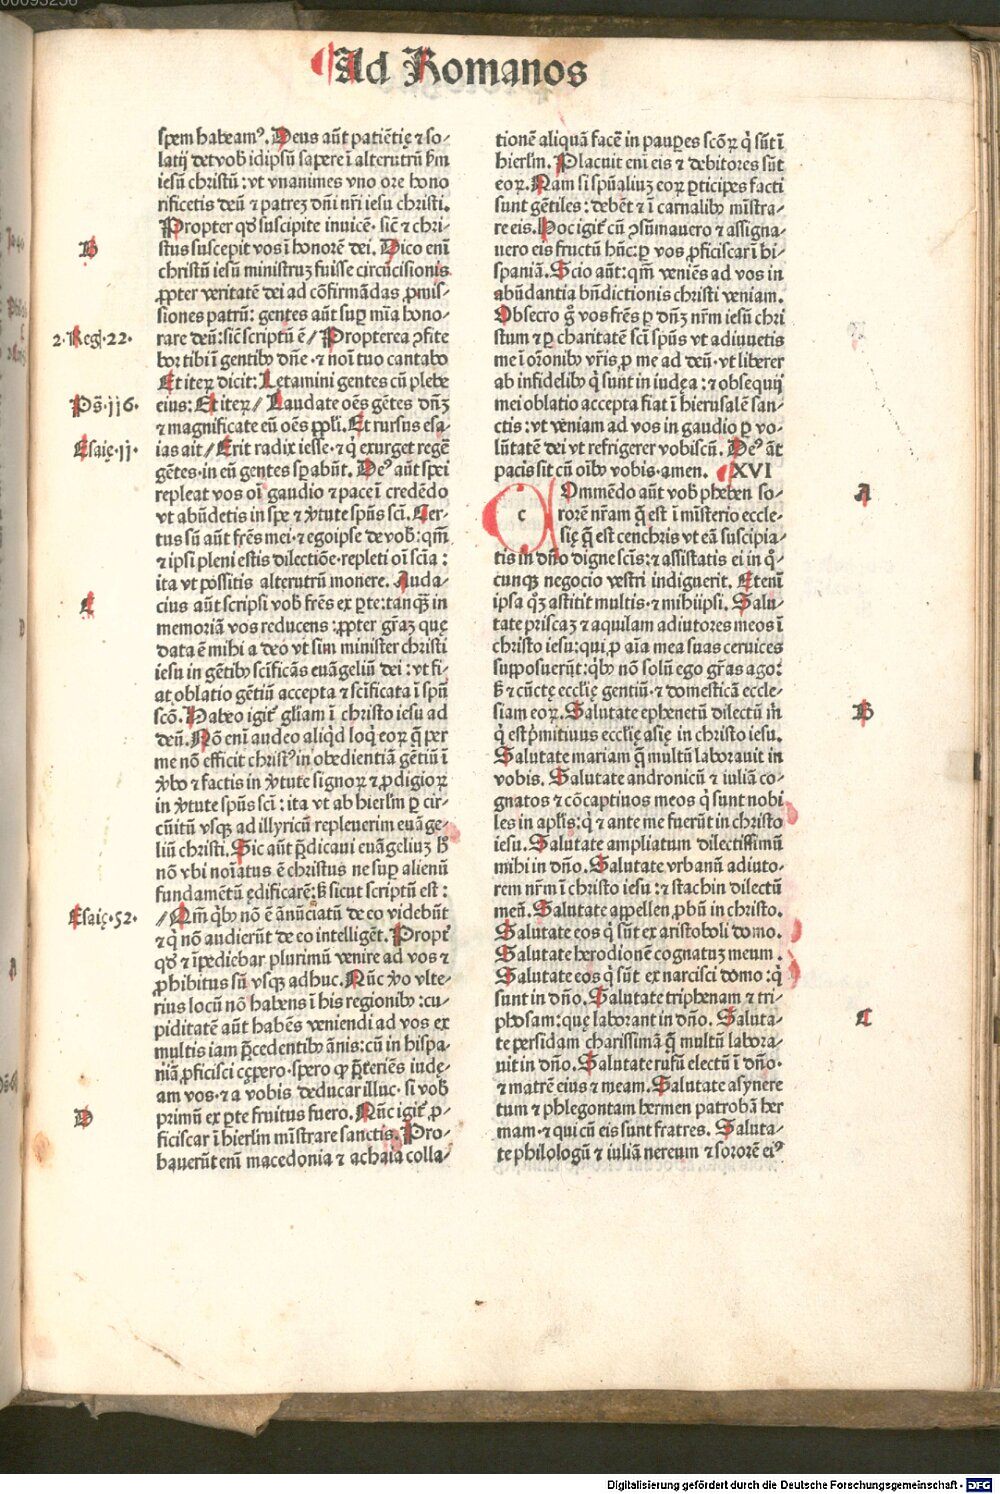 Ad Romanos
spem habeamꝰ. Deus aūt patiētię ⁊ so⸗
latij det vob̄ idipsū sapere ī alterutrū ẜm
iesū christū: vt vnanimes vno ore hono
rificetis deū ⁊ patreꝫ dn̄i nr̄i iesu christi.
Propter qd̛ suscipite inuicē· sic̄ ⁊ chri⸗
stus suscepit vos ī honorē dei. Dico eni
christū iesū ministruꝫ fuisse circūcisionis
ꝓpter veritatē dei ad cōfirmādas ꝓmis⸗
siones patrū: gentes aūt suꝑ mīa hono⸗
rare deū: sic̄ scriptū ē/ Propterea ꝯfite
bor tibi ī gentibꝰ dn̄e· ⁊ noī tuo cantabo
Et iteꝝ dicit: Letamini gentes cū plebe
eius: Et iteꝝ/ Laudate oēs gētes dn̄ꝫ
⁊ magnificate eū oēs ppl̄i. Et rursus esa⸗
ias ait/ Erit radix iesse· ⁊ q̇ exurget regē
gētes· in eū gentes speꝛabūt. Deꝰ aūt spei
repleat vos oī gaudio ⁊ pace ī credēdo
vt abūdetis in spe ⁊ v̛tute spūs sc̄i. Cer⸗
tus sū aūt fr̄es mei· ⁊ ego ipse de vob̄: qm̄
⁊ ipsi pleni estis dilectiōe· repleti oī scīa:
ita vt possitis alterutrū monere. Auda⸗
cius aūt scripsi vob̄ fr̄es ex ꝑte: tanqꝫ in
memoriā vos reducens: ꝓpter gr̄aꝫ quę
data ē mihi a deo vt sim minister christi
iesu in gētibꝰ sc̄ificās euāgeliū dei: vt fi⸗
at oblatio gētiū accepta ⁊ sc̄ificata ī spū
scō. Habeo igit̛ gl̄iam ī christo iesu ad
deū. Nō eni audeo aliqd̛ loq̇ eoꝝ q̄ per
me nō efficit christꝰ in obedientiā gētiū ī
v̛bo ⁊ factis in v̛tute signoꝝ ⁊ ꝓdigioꝝ
in v̛tute spūs sc̄i: ita vt ab hierl̄m ꝑ cir⸗
cūitū vsqꝫ ad illyricū repleuerim euāge⸗
liū christi. Sic aūt p̄dicaui euāgeliuꝫ h̄
nō vbi noīatus ē christus ne suꝑ alienū
fundamētū ędificarē: ẜ sicut scriptū est:
/ Qm̄ qͥbꝰ nō ē ānūciatū de eo videbūt
⁊ q̇ nō audierūt de eo intelligēt. Propt̛
qd̛ ⁊ īpediebar plurimū venire ad vos ⁊
ꝓhibitus sū vsqꝫ adhuc. Nūc v̛o vlte⸗
rius locū nō habens ī his regionibꝰ: cu⸗
piditatē aūt habēs veniendi ad vos ex
multis iam p̄cedentibꝰ ānis: cū in hispa⸗
niā ꝓficisci cępero· spero ꝙ p̄teriēs iudę⸗
am vos· ⁊ a vobis deducar illuc· si vob̄
primū ex ꝑte fruitus fuero. Nūc igit̛ ꝓ⸗
ficiscar ī hierl̄m mīstrare sanctis. Pro⸗
bauerūt enī macedonia ⁊ achaia colla⸗
B
2·Reg·22·
Ps̄·116·
Esaię·11·
C
Esaię·52·
D
tionē aliquā facē in pauꝑes scōꝝ q̇ sūt ī
hierl̄m. Placuit eni eis ⁊ debitores sūt
eoꝝ. Nam si spūaliuꝫ eoꝝ ꝑticipes facti
sunt gētiles: debēt ⁊ ī carnalibꝰ mīstra⸗
re eis. Hoc igit̛ cū ꝯsūmauero ⁊ assigna⸗
uero eis fructū hūc: ꝑ vos ꝓficiscar ī hi⸗
spaniā. Scio aūt: qm̄ veniēs ad vos in
abūdantia bn̄dictionis christi veniam.
Obsecro g̊ vos fr̄es ꝑ dn̄ꝫ nr̄m iesū chri
stum ⁊ ꝑ charitatē sc̄i spūs vt adiuuetis
me ī orōnibꝰ vr̄is ꝓ me ad deū· vt liberer
ab infidelibꝰ q̇ sunt in iudęa: ⁊ obsequij
mei oblatio accepta fiat ī hierusalē san⸗
ctis: vt veniam ad vos in gaudio ꝑ vo⸗
lūtatē dei vt refrigerer vobiscū. Deꝰ āt
pacis sit cū oībꝰ vobis· amen. XVI
c Ommēdo aūt vob̄ pheben so⸗
rorē nr̄am q̄ est ī mīsterio eccle⸗
się q̄ est cenchris vt eā suscipia⸗
tis in dn̄o digne scīs: ⁊ assistatis ei in q̊⸗
cunqꝫ negocio vestri indiguerit. Eteni
ipsa qͦꝫ astitit multis· ⁊ mihiipsi. Salu⸗
tate priscaꝫ ⁊ aquilam adiutores meos ī
christo iesu: qui ꝓ aīa mea suas ceruices
supposuerūt: qͥbꝰ nō solū ego gr̄as ago:
ẜ ⁊ cūctę eccl̄ię gentiū· ⁊ domesticā eccle⸗
siam eoꝝ. Salutate ephenetū dilectū m̄
q̇ est p̛mitiuus eccl̄ię asię in christo iesu.
Salutate mariam q̄ multū laborauit in
vobis. Salutate andronicū ⁊ iuliā co⸗
gnatos ⁊ cōcaptiuos meos q̇ sunt nobi
les in apl̄is: q̇ ⁊ ante me fuerūt in christo
iesu. Salutate ampliatum dilectissimū
mihi in dn̄o. Salutate vrbanū adiuto⸗
rem nr̄m ī christo iesu: ⁊ stachin dilectū
meū. Salutate appellen ꝓbū in christo.
Salutate eos q̇ sūt ex aristoboli domo.
Salutate herodionē cognatuꝫ meum.
Salutate eos q̇ sūt ex narcisci domo: q̇
sunt in dn̄o. Salutate triphenam ⁊ tri⸗
phosam: quę laborant in dn̄o. Saluta⸗
te persidam charissimā q̄ multū labora⸗
uit in dn̄o. Salutate rufū electū ī dn̄o·
⁊ matrē eius ⁊ meam. Salutate asyncre
tum ⁊ phlegontam hermen patrobā her
mam· ⁊ qui cū eis sunt fratres. Saluta⸗
te philologū ⁊ iuliā nereum ⁊ sororē eiꝰ
A
B
C
Digitalisierung gefördert durch die Deutsche Forschungsgemeinschaft - DFG